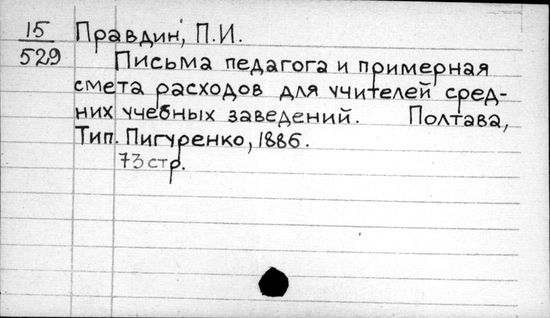 15
529
Правдин, П.И.
Письма педагога и примерная
смета расходов для учителей сред-
них учебных заведений. Полтава,
Тип. Пигуренко, 1886.
73 стр.